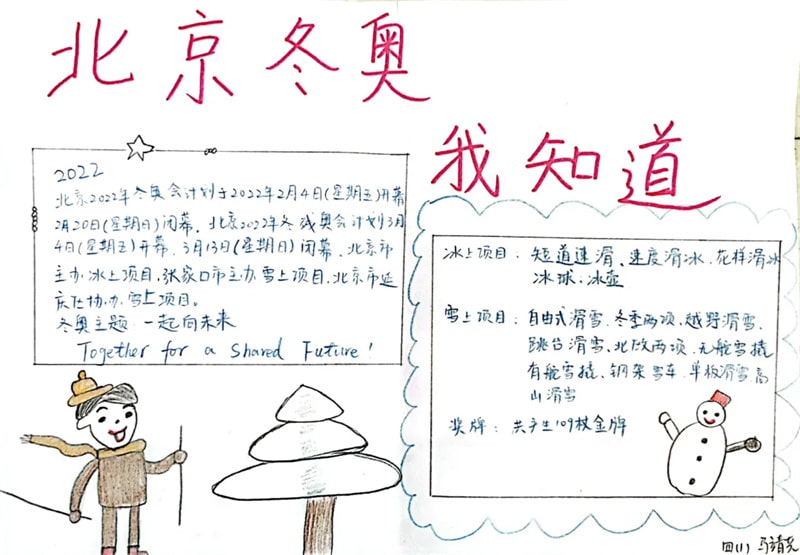 北京冬奥
我知道
2022
北京2022年冬奥会计划于2022年2月4日(星期五)开幕
2月20日(星期日)闭幕、北京2022年冬残奥会计划3月
4日(星期五)开幕、3月13日(星期日)闭幕、北京市
主办冰上项目,张家口市主办雪上项目、北京市延
庆协办雪上项目。
冬奥主题 一起向未来
Together for a Shared Future!
冰上项目:短道速滑、速度滑冰、花样滑冰
冰球;冰壶
雪上项目:自由式滑雪、冬季两项、越野滑雪、
跳台滑雪、北欧两项、无舵雪橇
有舵雪橇、钢架雪车、单板滑雪高
山滑雪
奖牌:共产生109枚金牌
四(1) 马靖